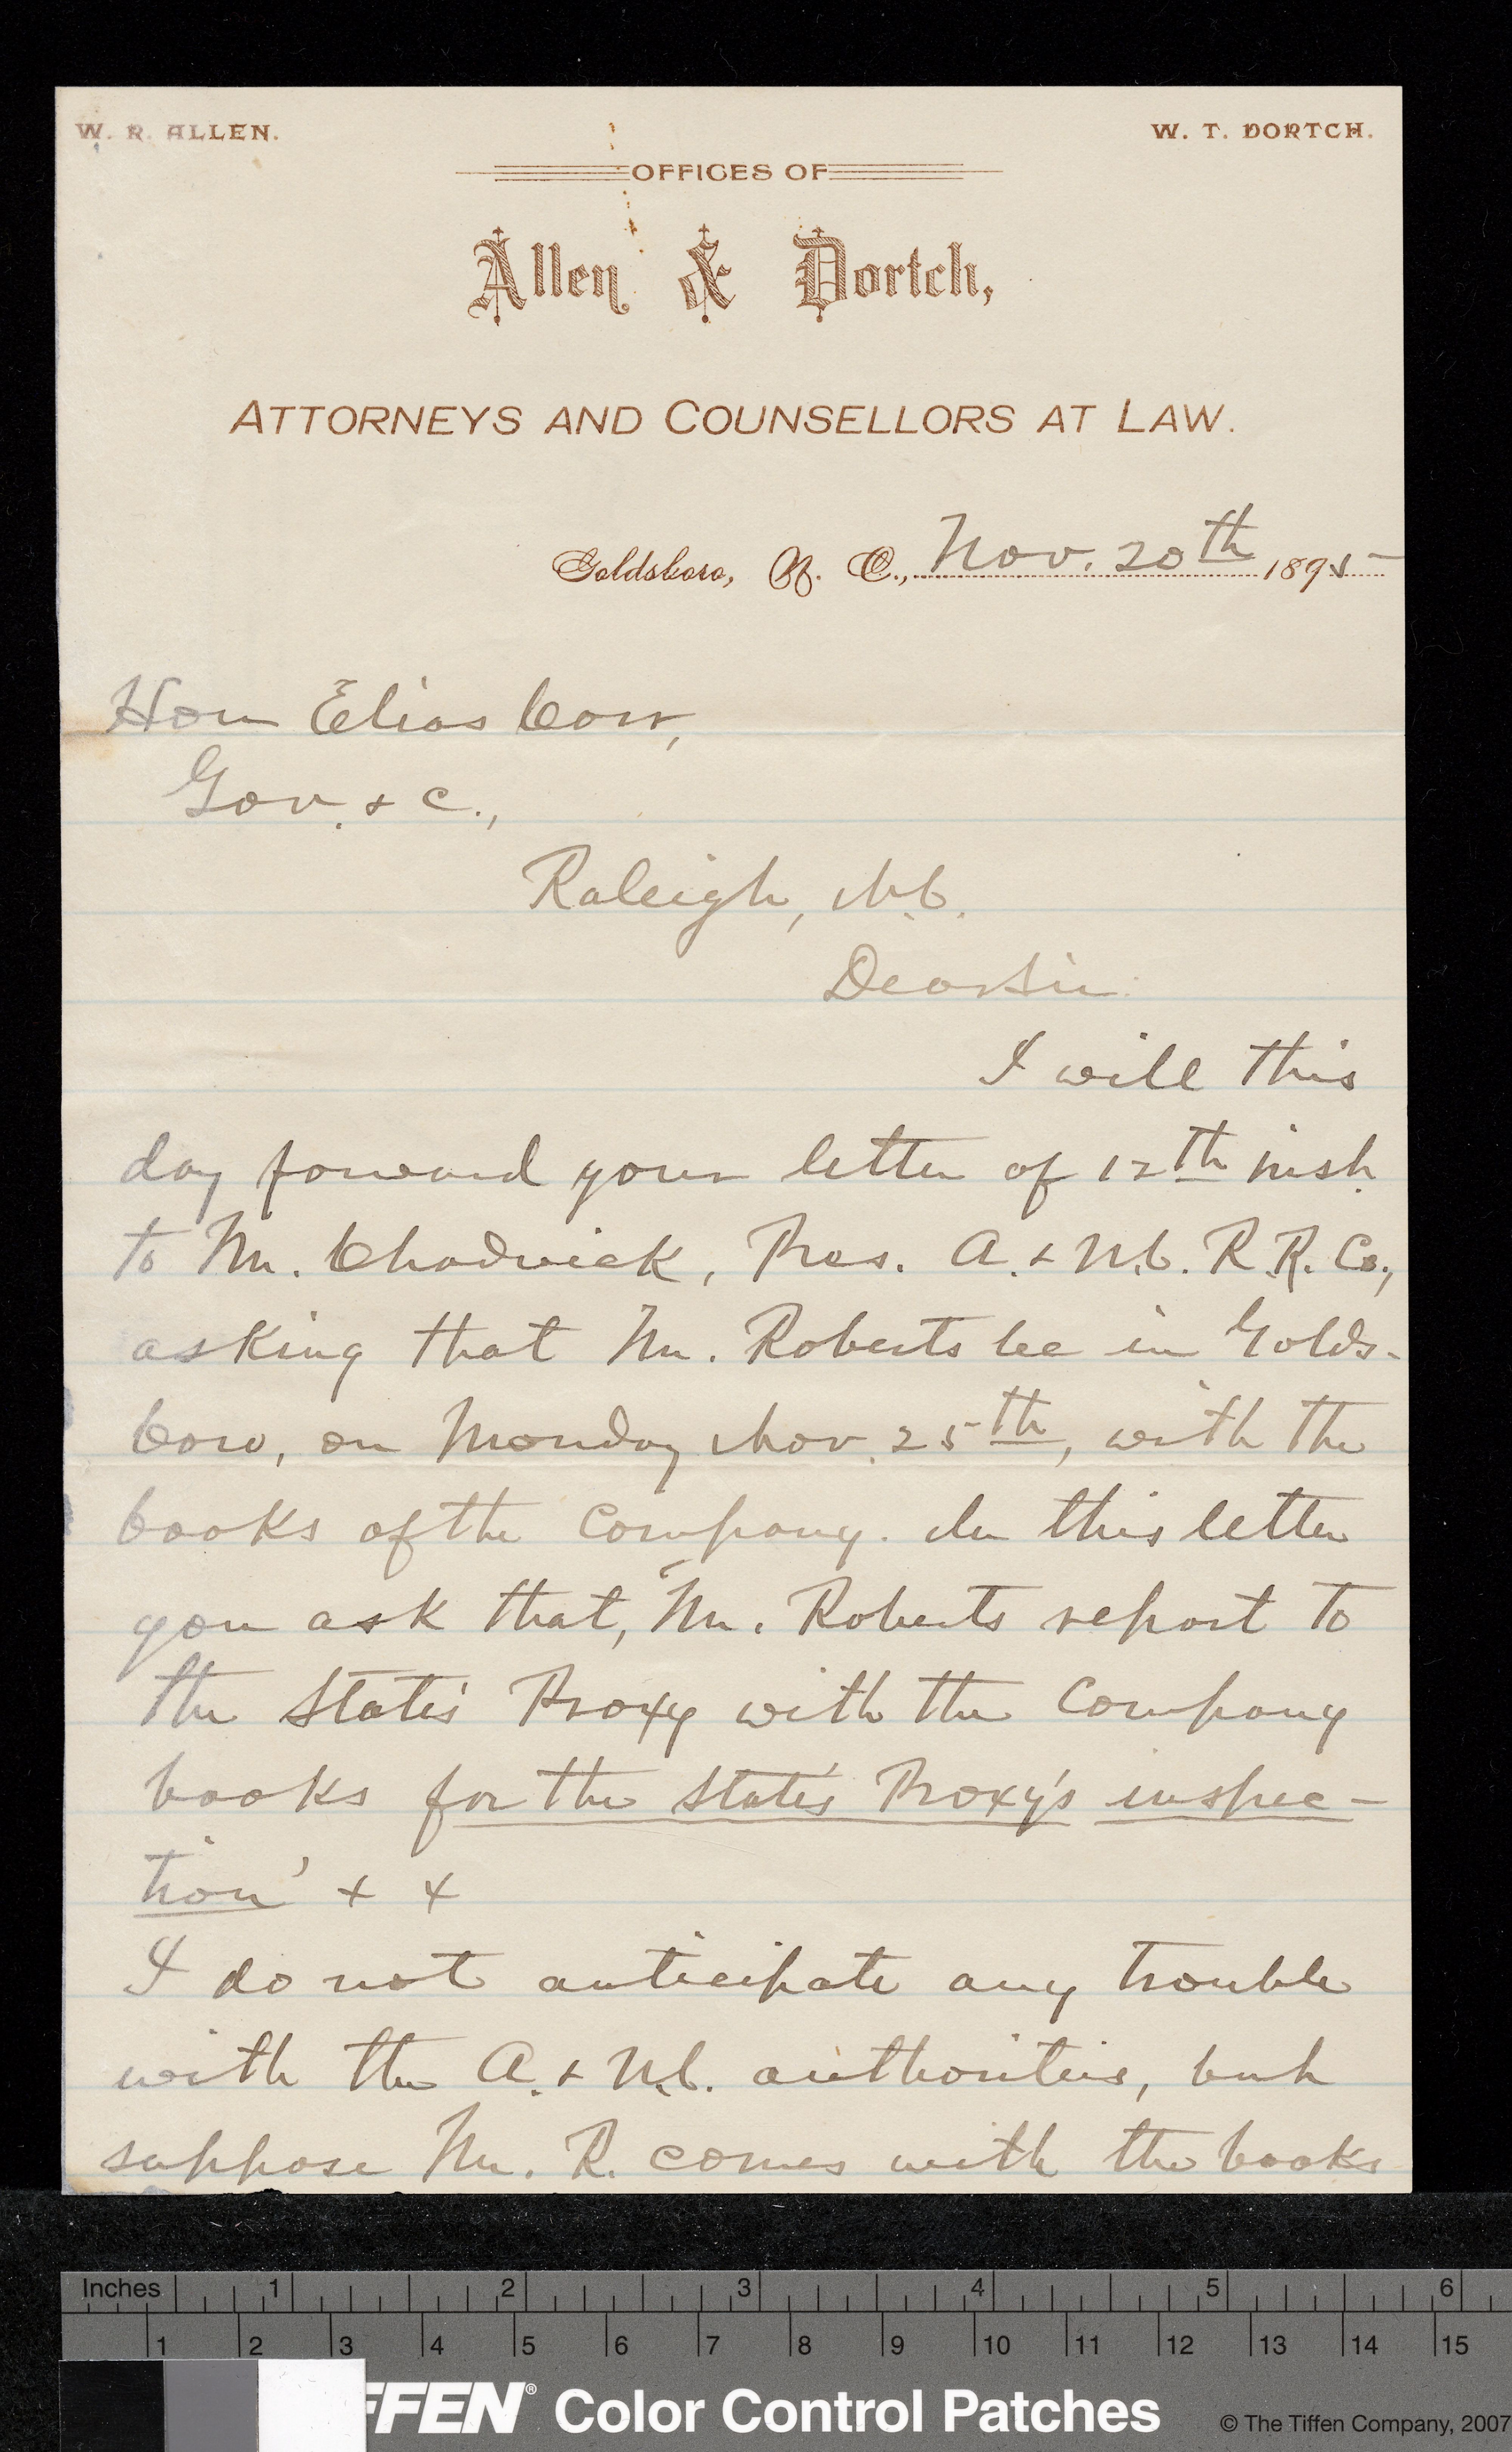 W. R. ALLEN.
W. T. DORTCH.
OFFICES OF
Allen & Dortch,
ATTORNEYS AND COUNSELLORS AT LAW.
Goldsboro, N. C., Nov. 20th 1895
Hon Elias Carr,
Gov. & c.,
Raleigh, N.C.
Dear Sir
I will this
day forward your letter of 12th inst.
to Mr. Chadwick, Pres. A. & N.C. R.R. Co.,
asking that Mr. Roberts be in Golds-
boro, on Monday Nov. 25th, with the
books of the Company. In this letter
you ask that, "Mr. Roberts report to
the State's Proxy with the Company
books for the State's Proxy's inspec-
tion' x x
I do not anticipate any trouble
with the A. & N.C. authorities, but
suppose Mr. R. comes with the books
Inches 1 2 3 4 5 6
1 2 3 4 5 6 7 8 9 10 11 12 13 14 15
FFEN® Color Control Patches
© The Tiffen Company, 2007